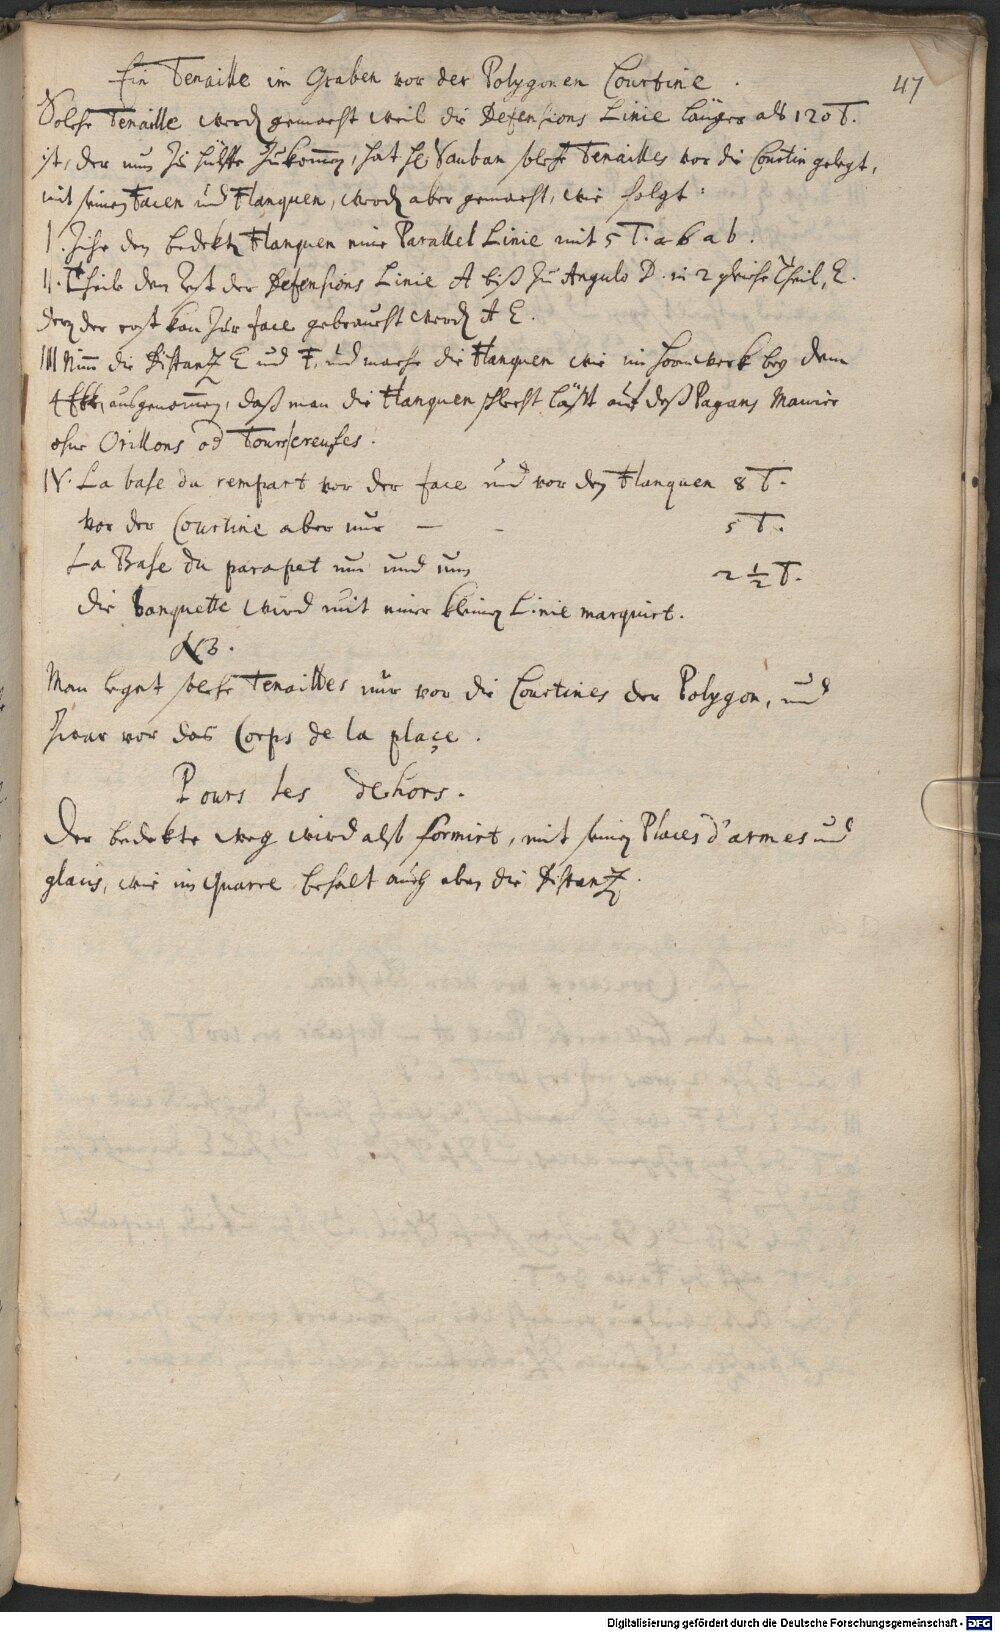 Ein Tenaille im Graben vor der Polygonen Courtine.
47
Solche Tenaille werd gemacht weil die Defensions Linie länger als 120 T.
ist, der nun zu hülffe zukomen, hat H. Vauban solche Tenailles vor die Courtin gelegt,
mit seinen Facen und Flanquen, werd aber gemacht, wie folgt:
I. Zihe den bedekten Flanquen eine Parallel Linie mit 5 T. a b a b.
II. Theile den Rest der Defensions Linie A biß zu Angulo D. in 2 gleiche Theil, E.
der erst kan zur face gebraucht werd A E.
III Nim die Distanz E und F, und mache die Flanquen wie im Hornwerk bey dem
4 Ekk, ausgenommen, daß man die Flanquen schlecht läßt auf deß Pagans Manier
ohne Orillons od Tours creuses.
IV. La base du rempart vor der face und vor den Flanquen 8 T.
vor der Courtine aber nur — - 5 T.
La Base du parapet um und um 2 1/2 T.
die banquette wird mit einer kleinen Linie marquirt.
NB.
Man legat solche Tenailles nur vor die Courtines der Polygon, und
zwar vor das Corps de la plaçe.
Pours les dehors.
Der bedekte weg wird alß formirt, mit seinen Places d'armes und
glacis, wie im quarre behalt auch eben die Distanz.
Digitalisierung gefördert durch die Deutsche Forschungsgemeinschaft - DFG